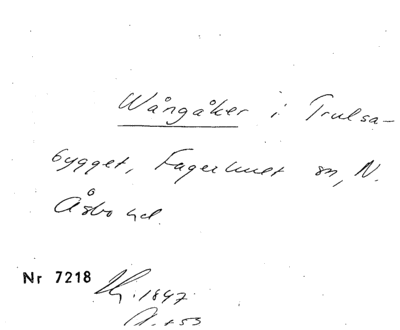 Wångåker i Trulsa-
bygget, Fagerhult sn, N.
Åsbo hd.
Nr 7218
1847